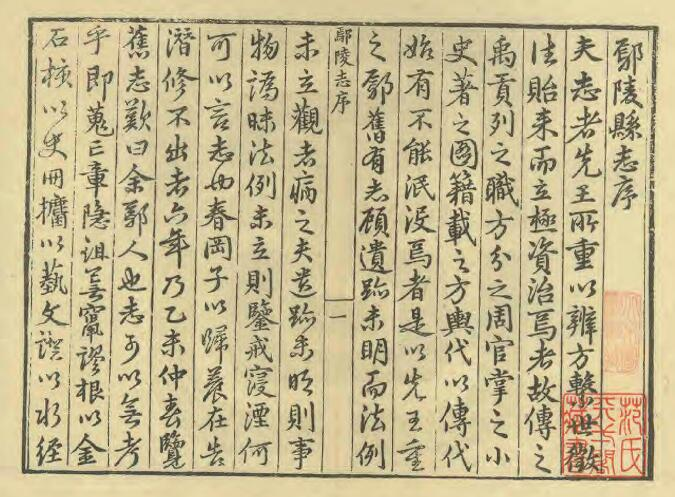 鄢陵縣志序
夫志者先王所重以辨方繫世徵
往貽来而立極資治焉者故傳之
禹貢列之職方分之周官掌之小
史著之圖籍載之方輿代以傳代
始有不能泯没焉者是以先王重
之鄢舊有志顧遺跡未明而法例
鄢陵志序
一
未立觀者病之夫遺跡未明則事
物譌昧法例未立則鑒戒寖湮何
可以言志也春岡子以歸養在告
潛修不出者六年乃乙未仲春覽
舊志歎曰余鄢人也志可以無考
乎即蒐章隐竄謬根以金
石核以史冊攟以藝文證以水经
范氏
天一閣
藏書